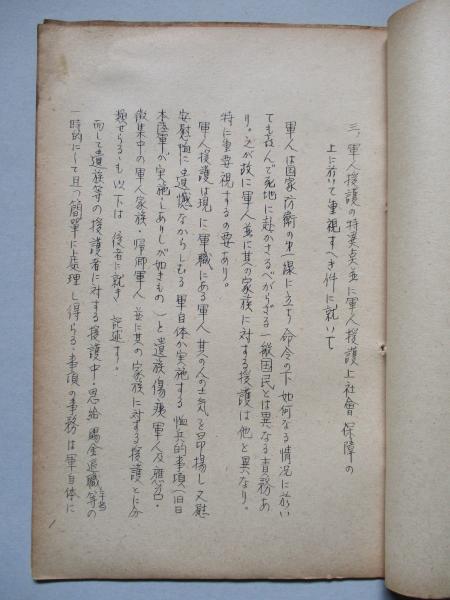 三、軍人援護の特異点並に軍人援護上社會保障の
上に於いて重視すべき件に就いて
軍人は国家防衛の第一線に立ち命令の下如何なる情況に於い
ても喜んで死地に赴かざるべからざる一般国民とは異なる責務あ
り。之が故に軍人並に其の家族に対する援護は他と異なり。
特に重要視するの要あり。
軍人援護は現に軍職にある軍人其の人の士気を昂揚し又慰
安慰恤に遺憾なからしむる軍自体が実施する恤兵的事項(旧日
本陸軍が実施しありしが如きもの)と遺族傷痍軍人及應召・
徴集中の軍人家族・帰郷軍人並に其の家族に対する援護とに分
類せらるゝも以下は後者に就き記述す。
而して遺族等の援護者に対する援護中・恩給賜金退職手当等の
一時的にして且つ簡單に處理し得らるゝ事項の事務は軍自体に